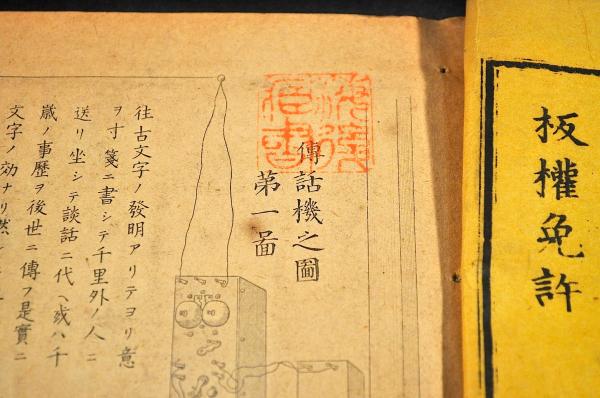 板權免許
傳話機之圖
第一啚
往古文字ノ發明アリテヨリ意
ヲ寸箋ニ書シテ千里外ノ人ニ
送リ坐シテ談話ニ代ヘ或ハ千
歳ノ事歷ヲ後世ニ傳フ是實ニ
文字ノ効ナリ然